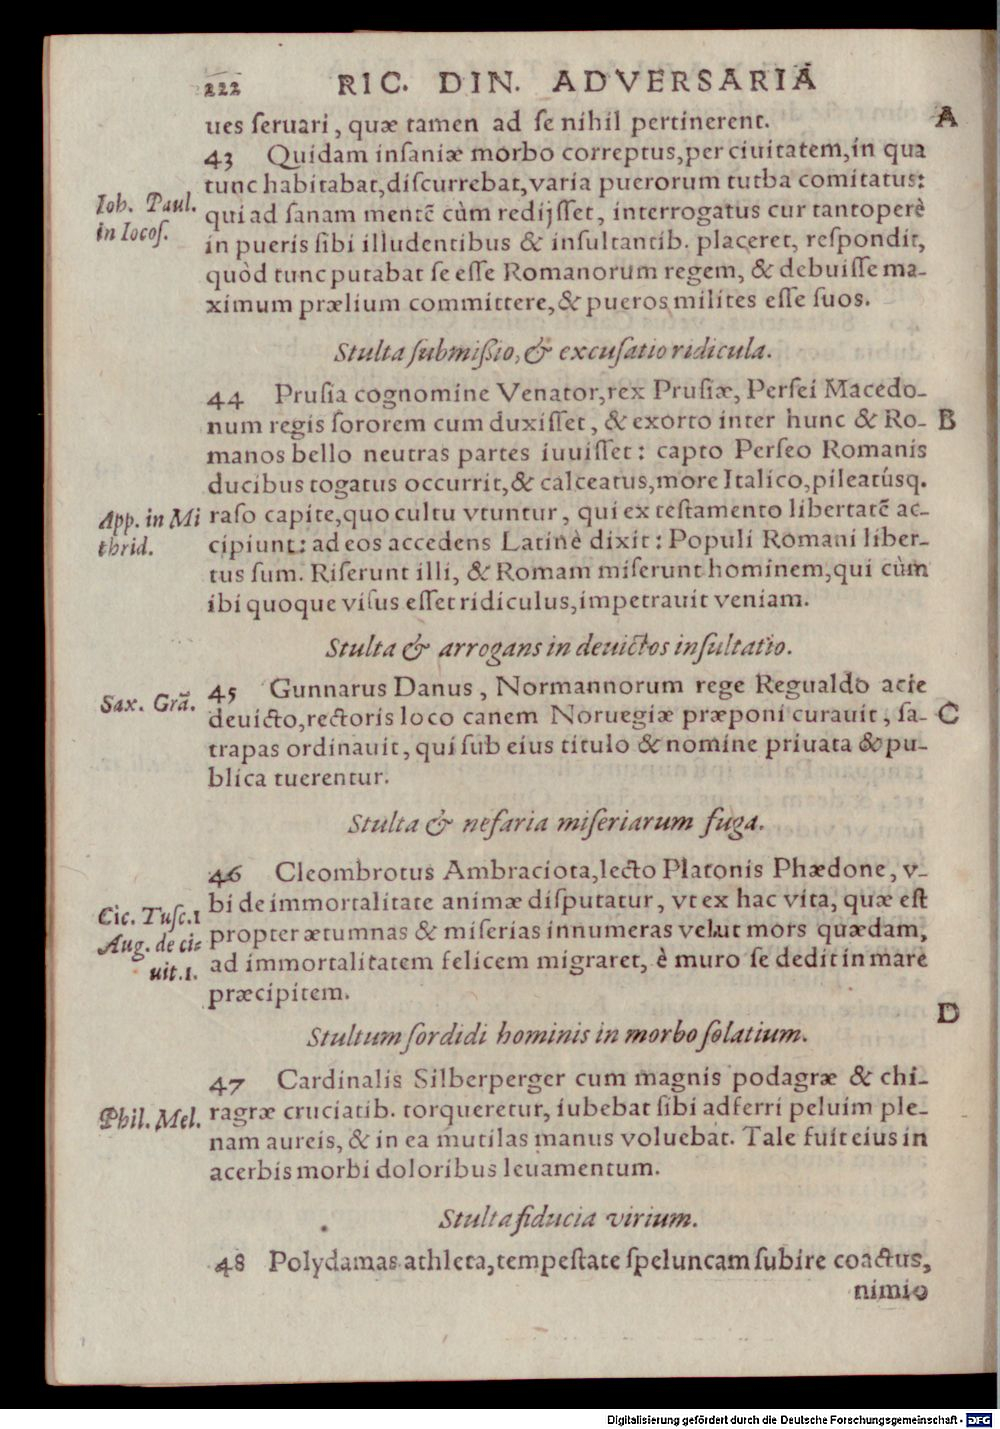 222 RIC. DIN. ADVERSARIA
ues ſeruari, quæ tamen ad ſe nihil pertinerent. A
43 Quidam inſaniæ morbo correptus, per ciuitatem, in qua
tunc habitabat, diſcurrebat, varia puerorum turba comitatus:
Ioh. Paul. qui ad ſanam mentẽ cùm redijſſet, interrogatus cur tantoperè
in Iocoſ. in pueris ſibi illudentibus & inſultantib. placeret, reſpondit,
quòd tunc putabat ſe eſſe Romanorum regem, & debuiſſe ma-
ximum prælium committere, & pueros milites eſſe ſuos.
Stulta ſubmiſsio, & excuſatio ridicula.
44 Pruſia cognomine Venator, rex Pruſiæ, Perſei Macedo-
num regis ſororem cum duxiſſet, & exorto inter hunc & Ro- B
manos bello neutras partes iuuiſſet: capto Perſeo Romanis
ducibus togatus occurrit, & calceatus, more Italico, pileatúsq.
App. in Mi raſo capite, quo cultu vtuntur, qui ex teſtamento libertatẽ ac-
thrid. cipiunt: ad eos accedens Latinè dixit: Populi Romani liber-
tus ſum. Riſerunt illi, & Romam miſerunt hominem, qui cùm
ibi quoque viſus eſſet ridiculus, impetrauit veniam.
Stulta & arrogans in deuictos inſultatio.
Sax. Grã. 45 Gunnarus Danus, Normannorum rege Regualdo acie
deuicto, rectoris loco canem Noruegiæ præponi curauit, ſa- C
trapas ordinauit, qui ſub eius titulo & nomine priuata & pu-
blica tuerentur.
Stulta & nefaria miſeriarum fuga.
46 Cleombrotus Ambraciota, lecto Platonis Phædone, v-
Cic. Tuſc. 1 bi de immortalitate animæ diſputatur, vt ex hac vita, quæ eſt
Aug. de ci= propter ærumnas & miſerias innumeras velut mors quædam,
uit. 1. ad immortalitatem felicem migraret, è muro ſe dedit in mare
præcipitem.
D
Stultum ſordidi hominis in morbo ſolatium.
47 Cardinalis Silberperger cum magnis podagræ & chi-
Phil. Mel. ragræ cruciatib. torqueretur, iubebat ſibi adferri peluim ple-
nam aureis, & in ea mutilas manus voluebat. Tale fuit eius in
acerbis morbi doloribus leuamentum.
Stulta fiducia virium.
48 Polydamas athleta, tempeſtate ſpeluncam ſubire coactus,
nimio
Digitalisierung gefördert durch die Deutsche Forschungsgemeinschaft - DFG